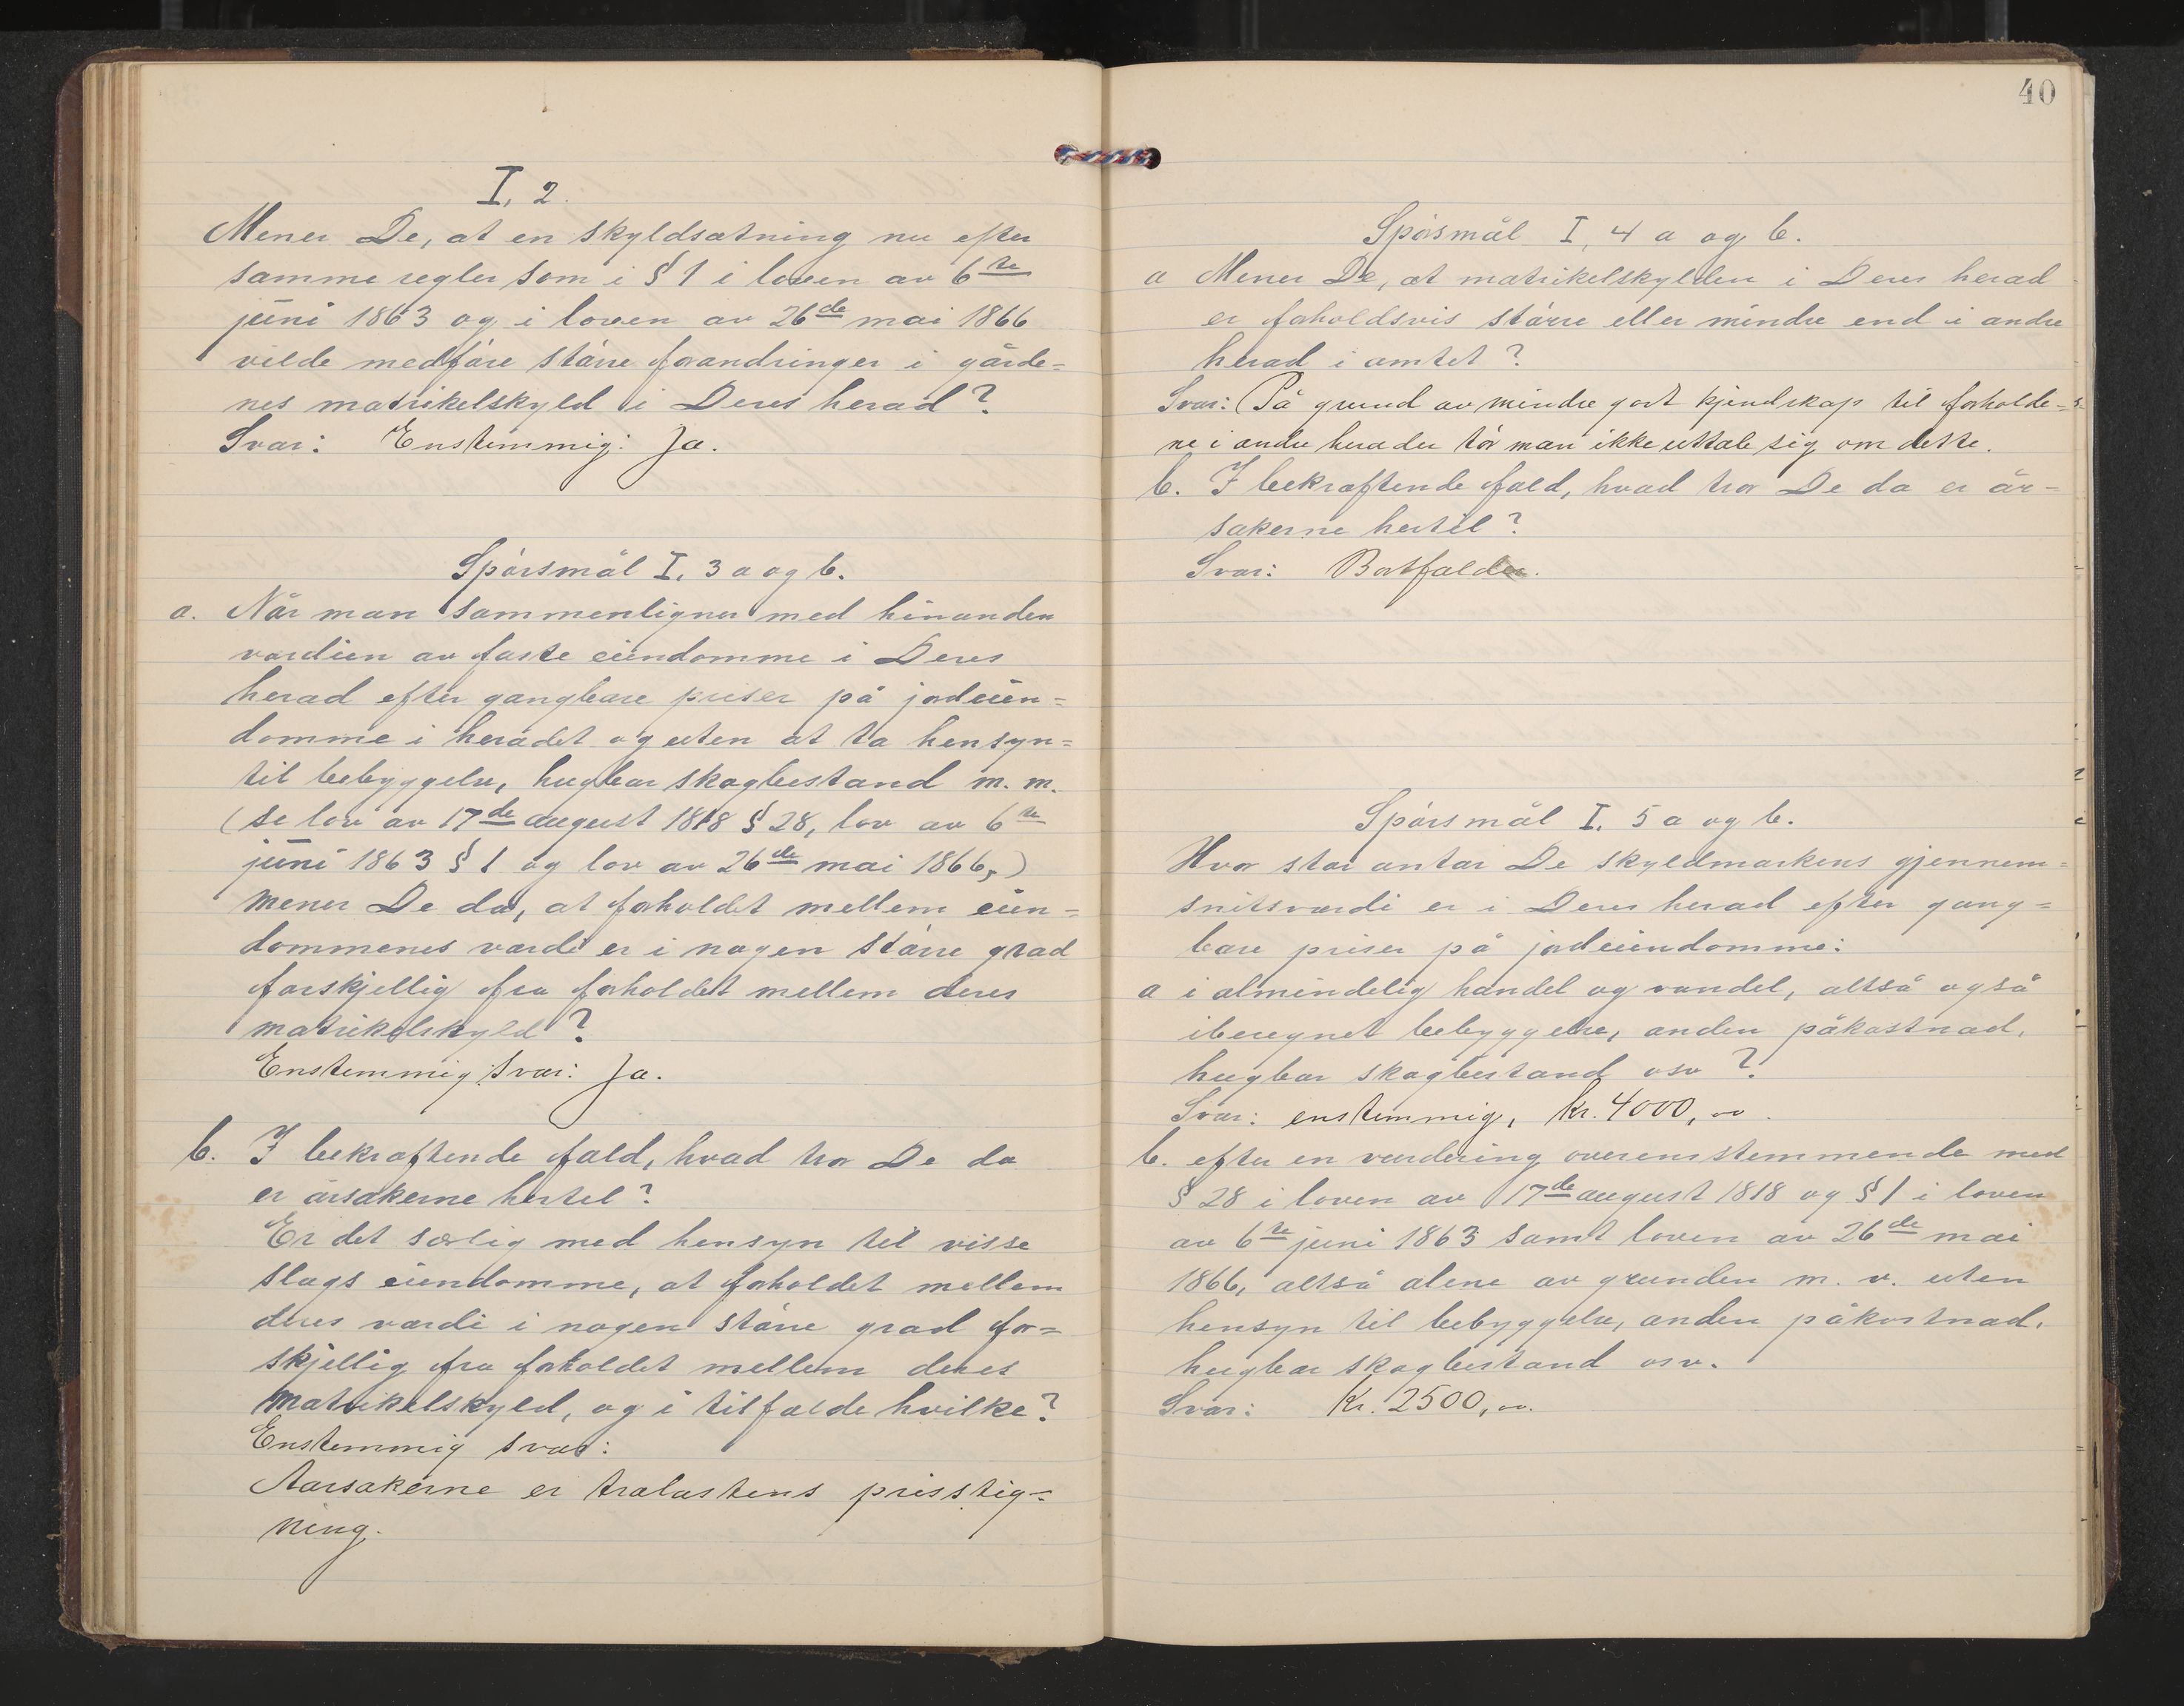 I, 2.
Mener De, at en skyldsætning nu efter
samme regler som i § 1 i loven av 6te
juni 1863 og i loven av 26de mai 1866
vilde medføre større forandringer i gårde=
nes matrikelskyld i Deres herad?
Svar: Enstemmig: Ja.
Spørsmål I, 3 a og b.
a. Når man sammenligner med hinanden
værdien av faste eiendomme i Deres
herad efter gangbare priser på jordeien=
domme i heradet og uten at ta hensyn=
til bebyggelse, hugbar skogbestand m. m.
(se lov av 17de august 1818 § 28, lov av 6te
juni 1863 § 1 og lov av 26de mai 1866,)
mener De da, at forholdet mellem eien=
dommenes værdi er i nogen større grad
forskjellig fra forholdet mellem deres
matrikelskyld?
Enstemmig svar: Ja.
b. I bekræftende fald, hvad tror De da
er årsakerne hertil?
Er det særlig med hensyn til visse
slags eiendomme, at forholdet mellem
deres værdi i nogen større grad for=
skjellig fra forholdet mellem deres
matrikelskyld, og i tilfælde hvilke?
Enstemmig svar:
Aarsakerne er trælastens prisstig=
ning.
40
Spørsmål I, 4 a og b.
a Mener De, at matrikelskylden i Deres herad
er forholdsvis større eller mindre end i andre
herad i amtet?
Svar: På grund av mindre godt kjendskap til forholde=
ne i andre herader tør man ikke uttale sig om dette.
b. I bekræftende fald, hvad tror De da er år=
sakerne hertil?
Svar: Bortfalder.
Spørsmål I, 5 a og b.
Hvor stor antar De skyldmarkens gjennem=
snitsværdi er i Deres herad efter gang=
bare priser på jordeiendomme:
a i almindelig handel og vandel, altså også
iberegnet bebyggelse, anden påkostnad,
hugbar skogbestand osv?
Svar: enstemmig, Kr. 4000,00.
b. efter en vurdering overensstemmende med
§ 28 i loven av 17de august 1818 og § 1 i loven
av 6te juni 1863 samt loven av 26de mai
1866, altså alene av grunden m. v. uten
hensyn til bebyggelse, anden påkostnad,
hugbar skogbestand osv.
Svar: Kr. 2500,00.